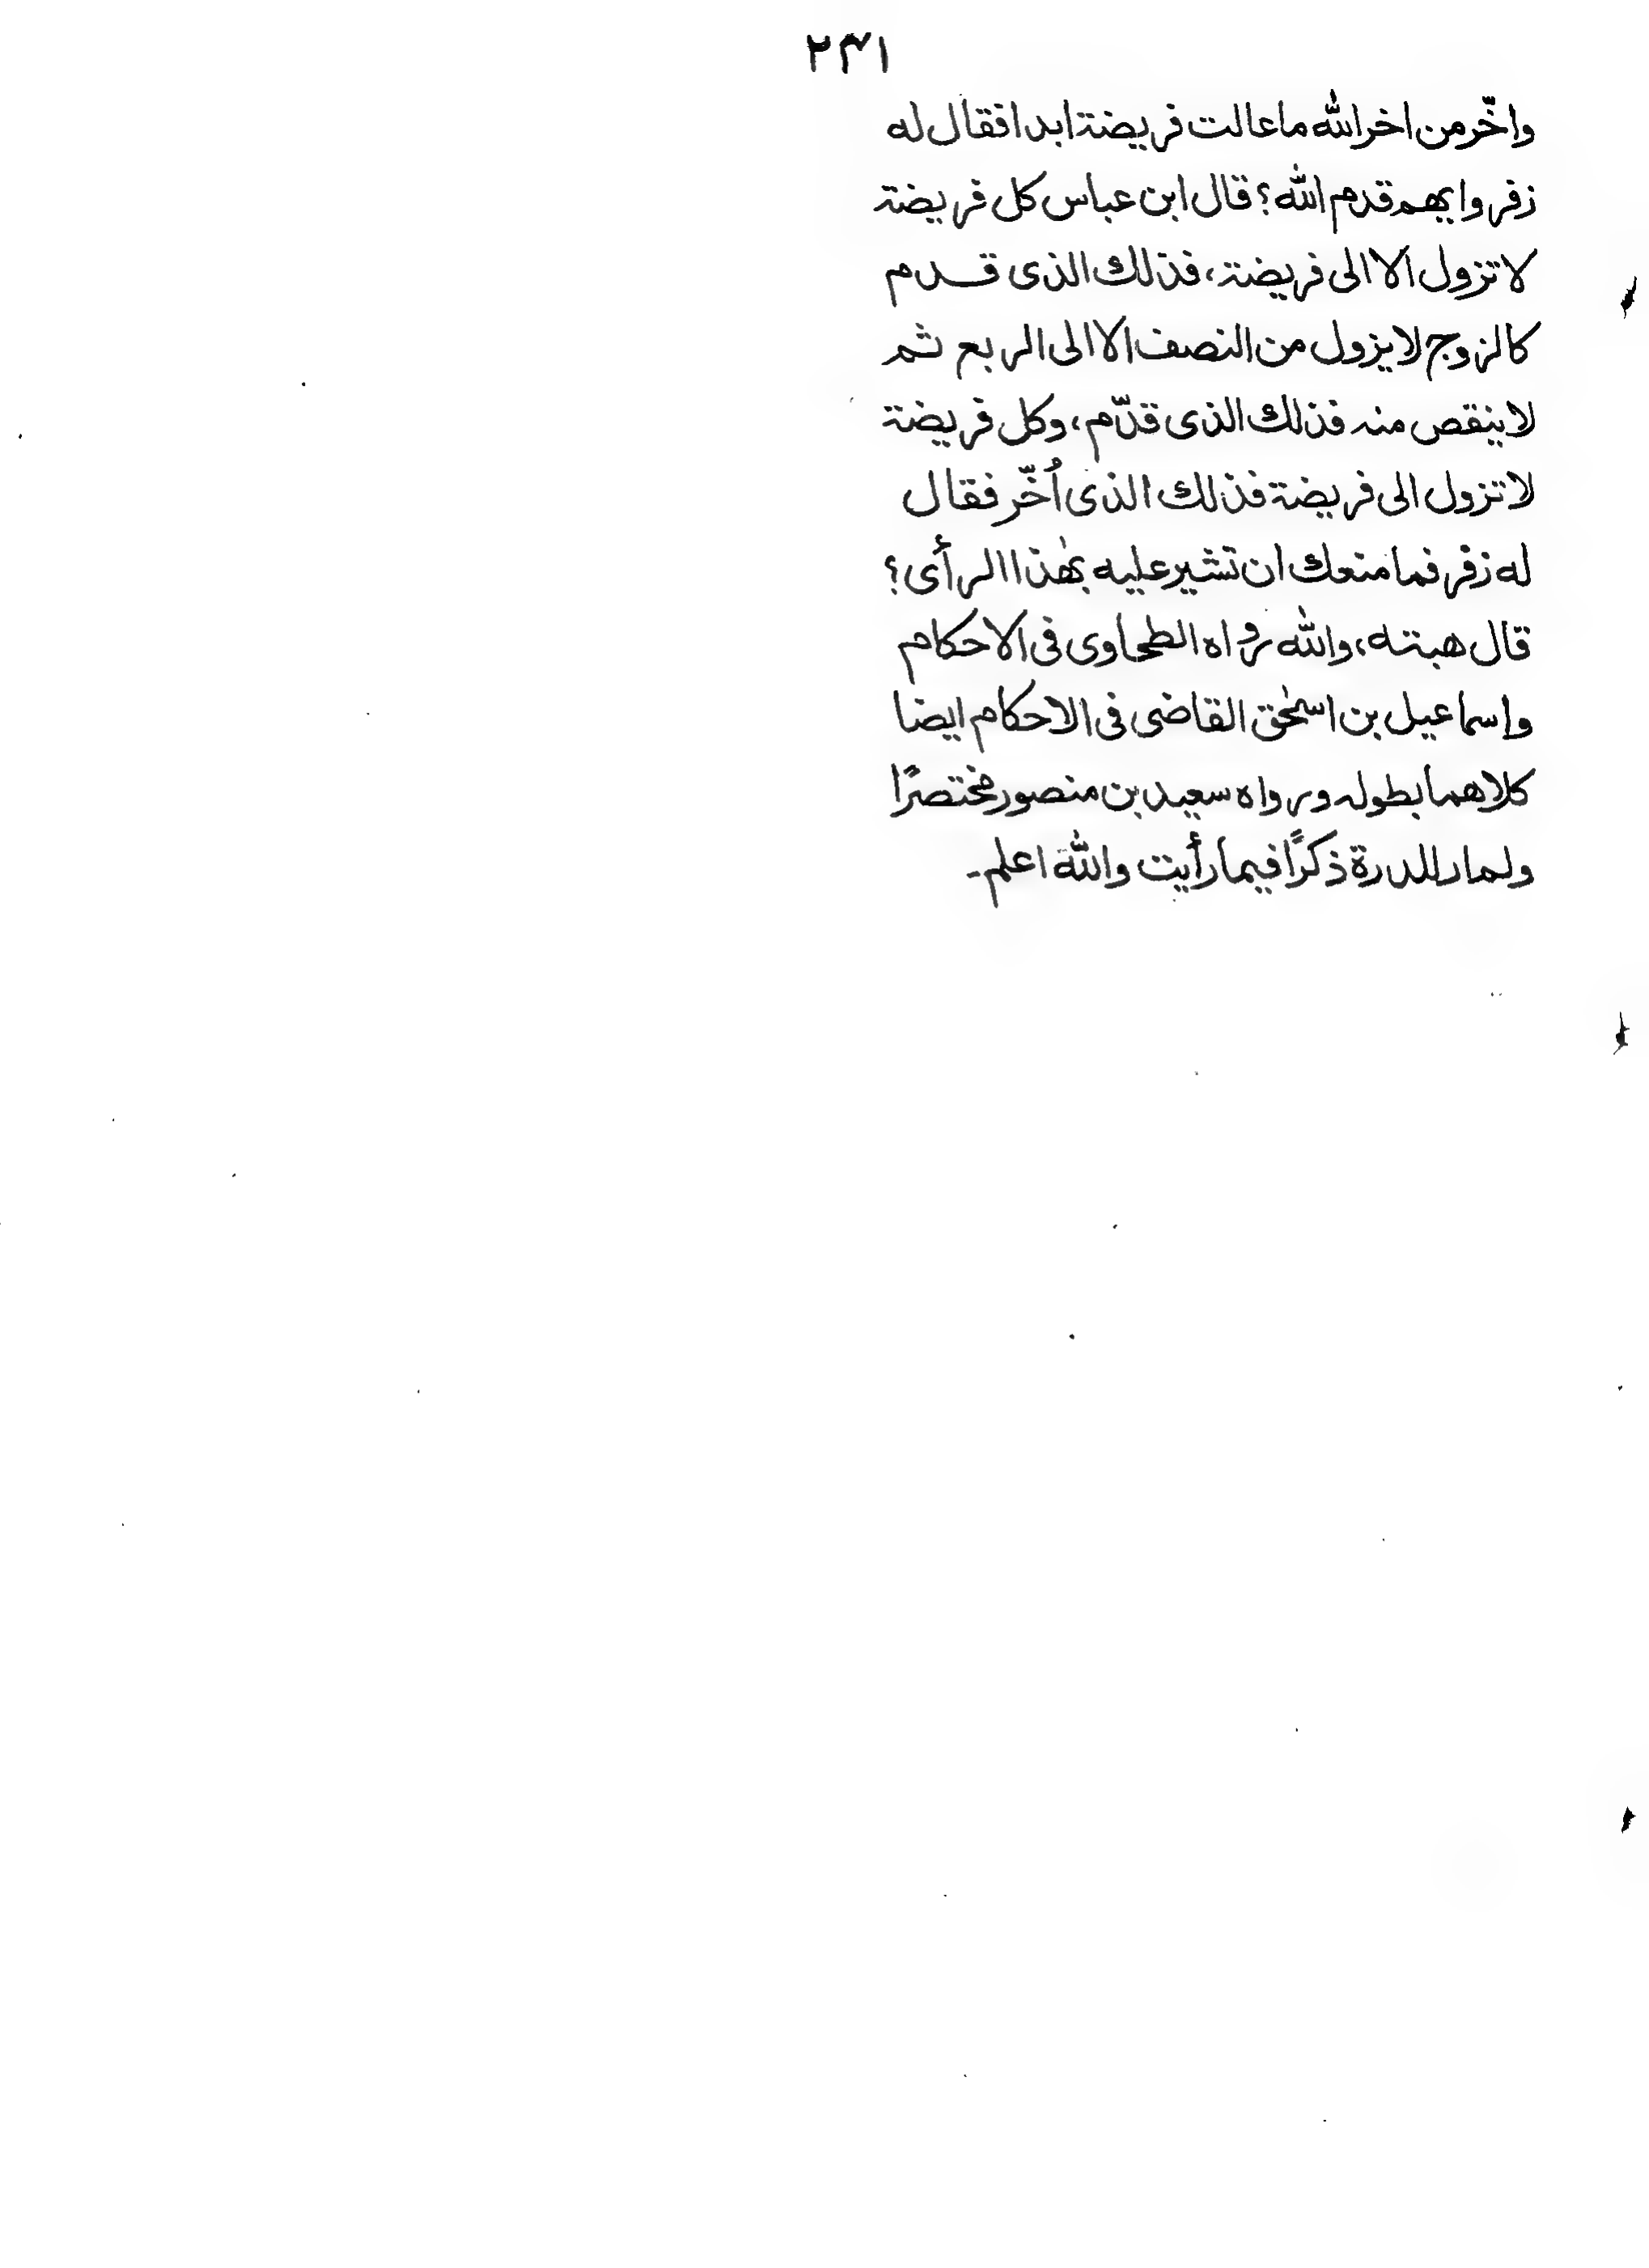 ۲۴۱
واخّر من اخر الله ما عالت فريضة ابدا فقال له
زفر وايهم قدم الله؟ قال ابن عباس كل فريضة
لا تزول الا الى فريضة، فذلك الذى قدم
كالزوج لا يزول من النصف الا الى الربع ثم
لا ينقص منه فذلك الذى قدّم، وكل فريضة
لا تزول الى فريضة فذلك الذى اُخّر فقال
له زفر فما منعك ان تشير عليه بهٰذا الرأى؟
قال هبته، والله رواه الطحاوى فى الاحكام
وإسماعيل بن اسحٰق القاضى فى الاحكام ايضا
كلاهما بطوله ورواه سعيد بن منصور مختصرًا
ولم ار للدرة ذكرًا فيما رأيت والله اعلم۔